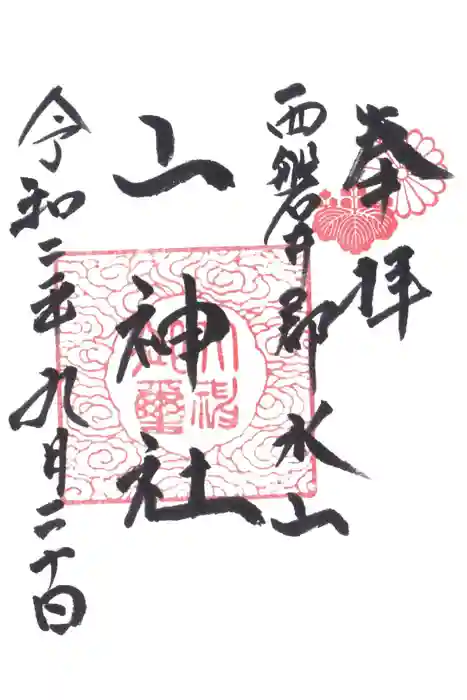 奉拝
西磐井郡水山
山神社
令和二年九月二十日